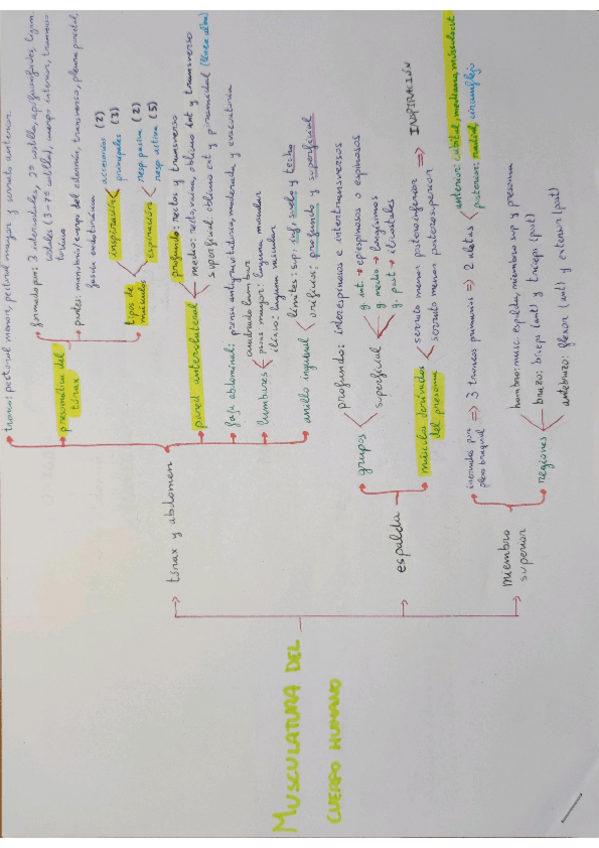 MUSCULATURA DEL
CUERPO HUMANO
tórax y abdomen
tronco: pectoral menor, pectoral mayor y serrato anterior.
presomática del
tórax
formado por: 3 intercostales,
costales
torácico
partes: manubrio/cuerpo del esternón, transverso, pleura parietal,
fascia endotorácica
tipos de
músculos
inspiración
accesorios (2)
principales (3)
espiración
resp. pasiva (2)
resp activa (5)
pared anterolateral
profundo: rectos y transverso
medio: recto, vaina, oblicuo int y transverso
superficial: oblicuo ext y piramidal (línea alba)
faja abdominal: prensa antigravitatoria, moderada y evacuatoria
lumbares
cuadrado lumbar
psoas mayor: laguna muscular
ilíaco: laguna muscular
anillo inguinal
límites: sup, inf, suelo y techo
orificios: profundo y superficial
espalda
grupos
profundo: interespinosos e intertransversos
superficial
g. int. → epiespinosos o espinosos
g. medio → longísimos
g. post → iliocostales
músculos derivados
del presoma
serrato menor posteroinferior
serrato menor posterosuperior
⇒ INSPIRACIÓN
miembro
superior
inervados por
plexo braquial
⇒ 3 troncos primarios ⇒ 2 aletas
anterior: cubital, mediano, músculocut
posterior: radial, circunflejo
regiones
hombro: musc. espalda, miembro sup y presoma
brazo: bíceps (ant) y tríceps (post)
antebrazo: flexor (ant) y extensor (post)